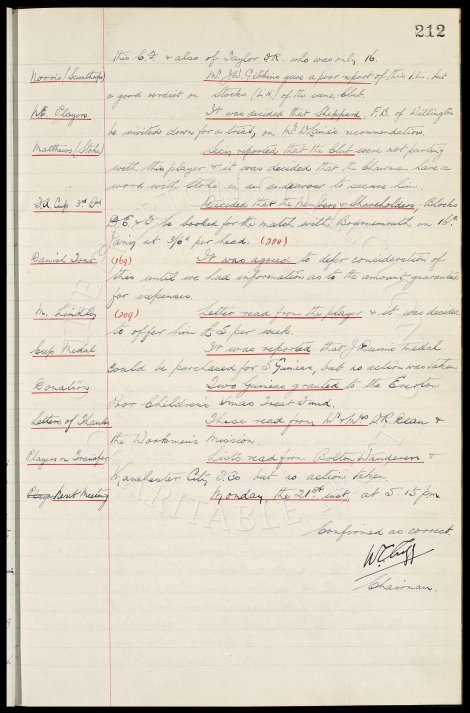 212
this C.F. & also of Taylor I.R. who was only 16.
Norris (Scunthorpe) Mr. J.W. Gibbins gave a poor report of this I.L. but
a good verdict on Stocks (L.H.) of this same Club.
N.E. Players It was decided that Sheppard, F.B. of Willington
be invited down for a trial, on recommendations.
Matthews (Stoke) Secy. reported that the Club were not parting
with this player & it was decided that the Chairman have a
word with Stoke in an endeavour to secure him.
F.A. Cup 3rd Rd Decided that the Members & Shareholders, Blocks
D, E, & F be booked for the match with Bournemouth on 16th
Jan'y at 3/6d per head. (224)
Danish Tour (169) It was agreed to defer consideration of
this until we had information as to the amount guaranteed
for expenses.
M. Lindley (209) Letter read from the player & it was decided
to offer him £5 per week.
Cup Medal It was reported that J. Medal
could be purchased for 5 Guineas, but no action was taken
Donation Two Guineas granted to the Everton
Poor Children's Xmas Treat Fund.
Letters of Thanks These read from Mr & Mrs W.R. Dean &
the Workmen's Mission.
Players on Transfer Lists read from Bolton Wanderers &
Manchester City F.Co but no action taken
Next Meeting Monday, the 21st inst at 5.15 pm.
Confirmed as correct.
W.C. Cuff
Chairman.